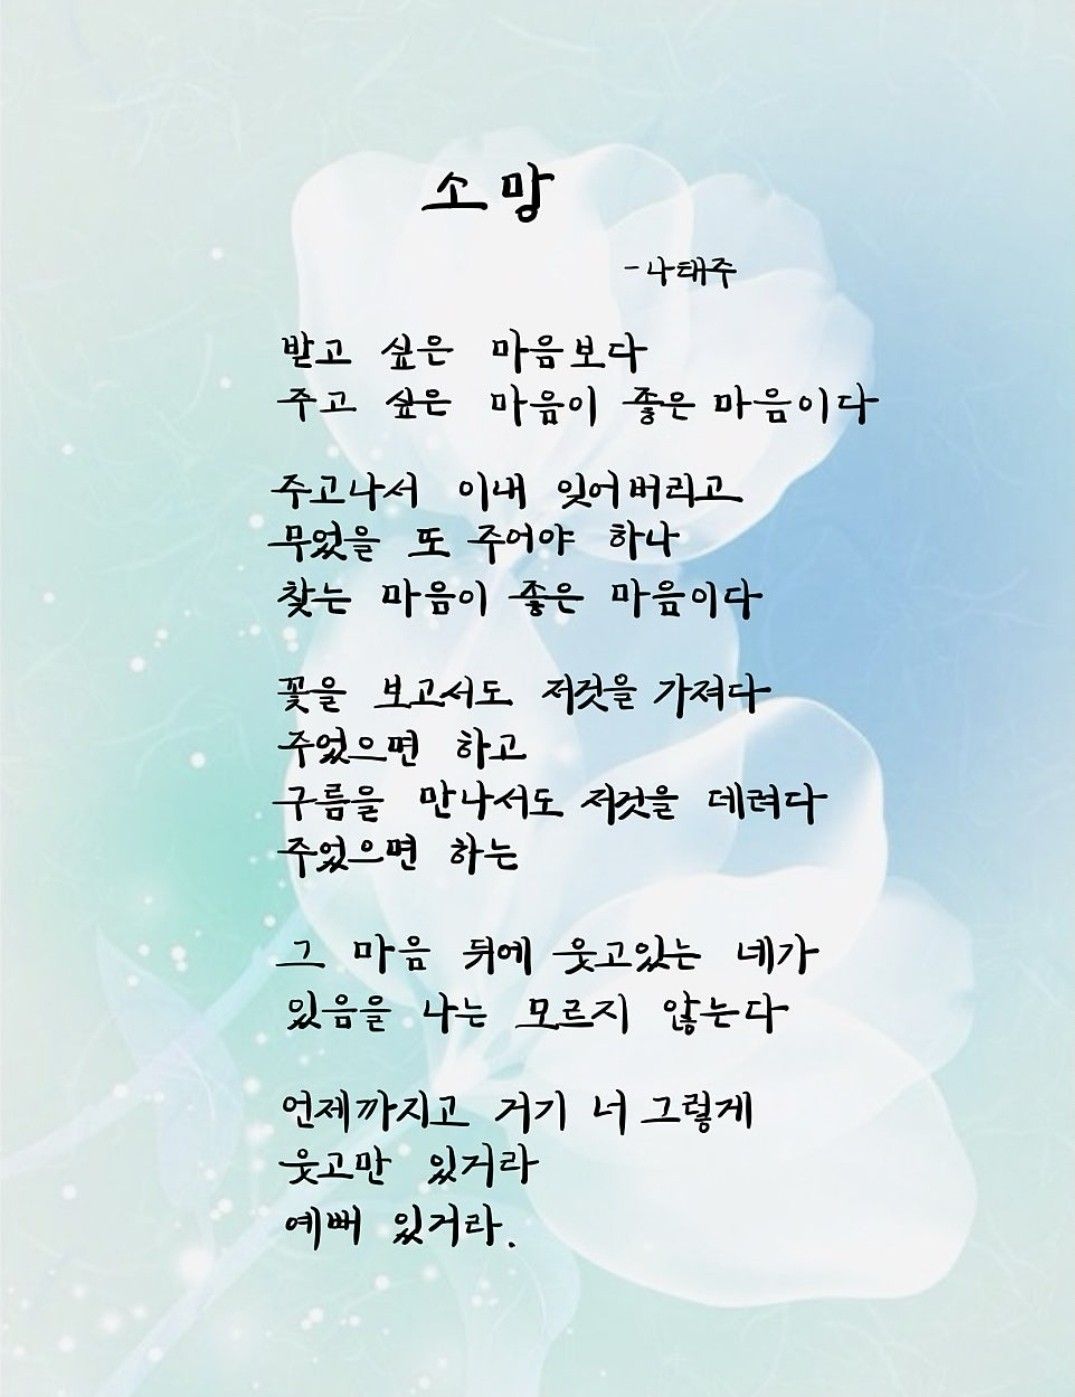 소망
-나태주
받고 싶은 마음보다
주고 싶은 마음이 좋은 마음이다
주고나서 이내 잊어버리고
무었을 또 주어야 하나
찾는 마음이 좋은 마음이다
꽃을 보고서도 저것을 가져다
주었으면 하고
구름을 만나서도 저것을 데려다
주었으면 하는
그 마음 뒤에 웃고있는 네가
있음을 나는 모르지 않는다
언제까지고 거기 너 그렇게
웃고만 있거라
예뻐 있거라.